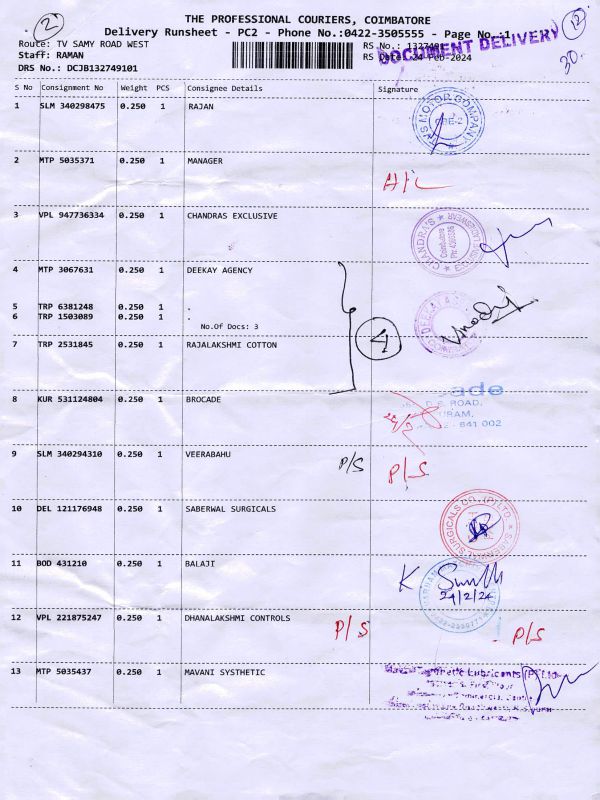 2
12
30
THE PROFESSIONAL COURIERS, COIMBATORE
Delivery Runsheet - PC2 - Phone No.:0422-3505555 - Page No.:1
Route: TV SAMY ROAD WEST
RS No.: 1327491
DOCUMENT DELIVERY
Staff: RAMAN
RS Date: 24-Feb-2024
DRS No.: DCJB132749101
S No Consignment No Weight PCS Consignee Details Signature
1 SLM 340298475 0.250 1 RAJAN
MOTOR COMPANY
CBE-2
2 MTP 5035371 0.250 1 MANAGER
3 VPL 947736334 0.250 1 CHANDRAS EXCLUSIVE
CHANDRA'S
Coimbatore
4 MTP 3067631 0.250 1 DEEKAY AGENCY
5 TRP 6381248 0.250 1 .
6 TRP 1503089 0.250 1 .
No.Of Docs: 3
DEEKAY
4
7 TRP 2531845 0.250 1 RAJALAKSHMI COTTON
8 KUR 531124804 0.250 1 BROCADE
ROAD,
641 002
9 SLM 340294310 0.250 1 VEERABAHU P/S P/S
10 DEL 121176948 0.250 1 SABERWAL SURGICALS
SABERWAL SURGICALS CO. (P) LTD
11 BOD 431210 0.250 1 BALAJI
K
24/2/24
12 VPL 221875247 0.250 1 DHANALAKSHMI CONTROLS P/S P/S
13 MTP 5035437 0.250 1 MAVANI SYSTHETIC
Lubricants (P) Ltd